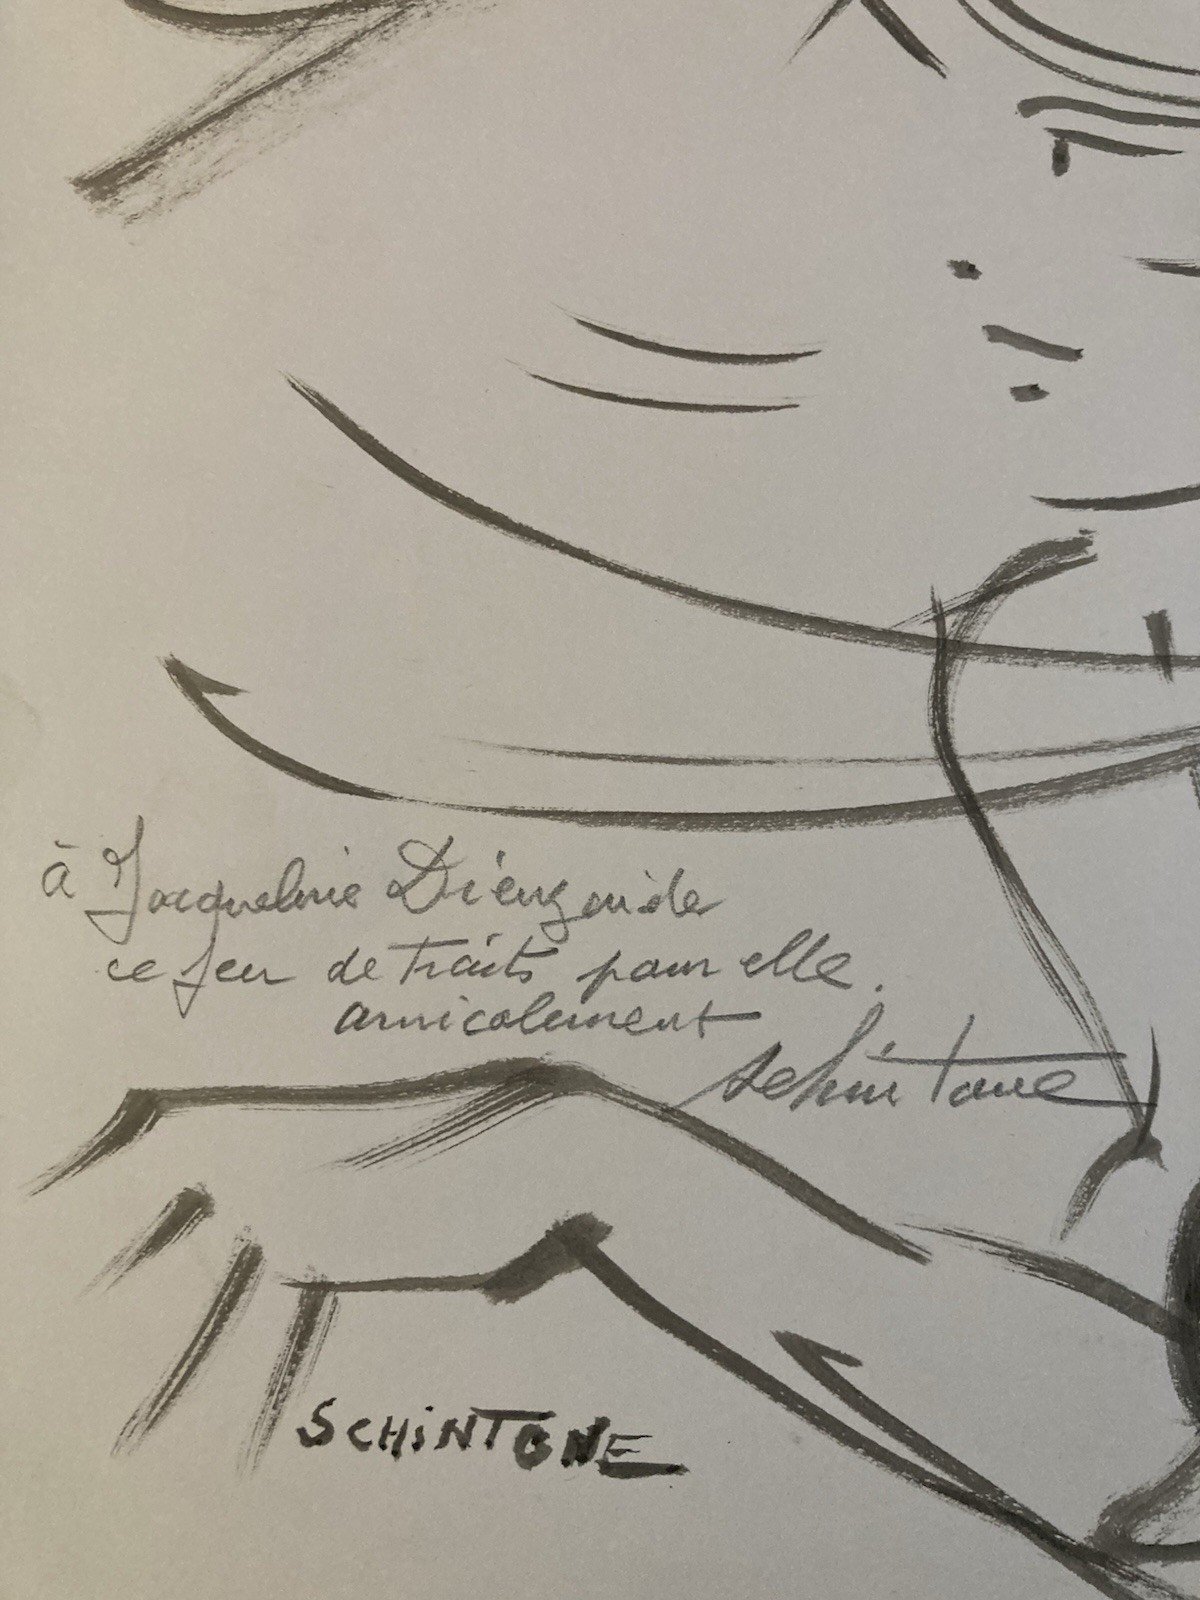 à Jacqueline
ce jeu de traits pour elle.
amicalement
Schintone
SCHINTONE